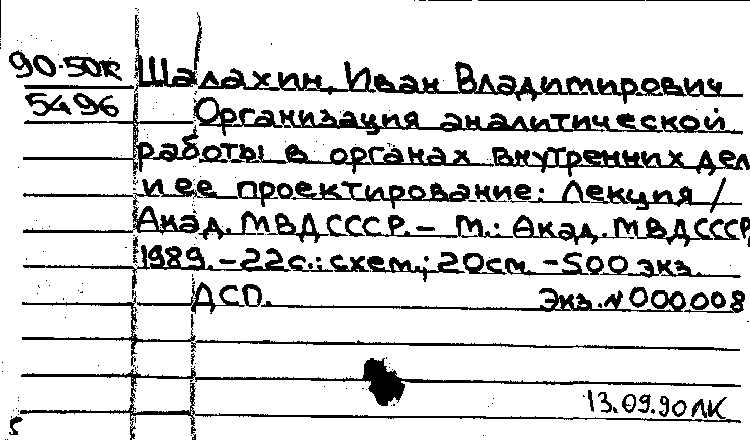 90-50к Шалахин, Иван Владимирович
5496 Организация аналитической
работы в органах внутренних дел
и ее проектирование: Лекция /
Акад. МВД СССР. – М.: Акад. МВД СССР,
1989. – 22с.: схем.; 20см – 500 экз.
ДСП. Экз. N 000008
13.09.90 ЛК